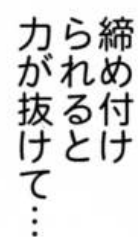 締め付け
られると
力が抜けて…